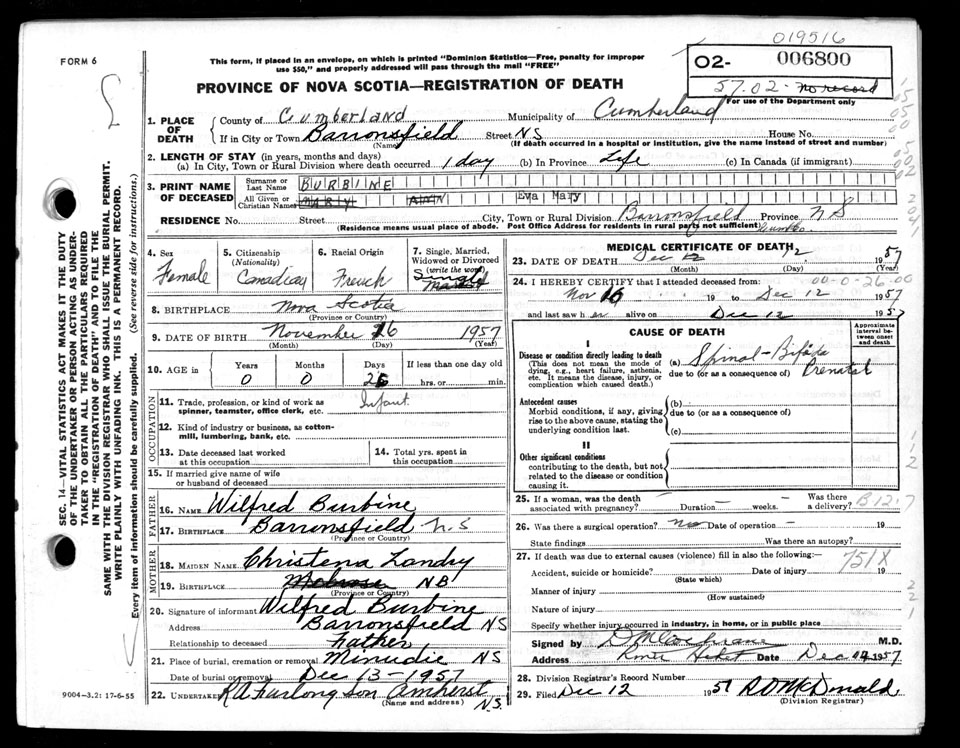 019516
FORM 6
This form, if placed in an envelope, on which is printed "Dominion Statistics—Free, penalty for improper
use $50," and properly addressed will pass through the mail "FREE"
O2- 006800
57.02- no record
For use of the Department only
PROVINCE OF NOVA SCOTIA—REGISTRATION OF DEATH
1. PLACE OF DEATH
County of Cumberland Municipality of Cumberland
If in City or Town Barronsfield Street NS House No.
(Name) (If death occurred in a hospital or institution, give the name instead of street and number)
2. LENGTH OF STAY (in years, months and days)
(a) In City, Town or Rural Division where death occurred 1 day (b) In Province Life (c) In Canada (if immigrant)
3. PRINT NAME OF DECEASED
Surname or Last Name BURBINE
All Given or Christian Names MARY ANN Eva Mary
RESIDENCE No. Street City, Town or Rural Division Barronsfield Province NS
(Residence means usual place of abode. Post Office Address for residents in rural parts not sufficient)
4. Sex
Female
5. Citizenship (Nationality)
Canadian
6. Racial Origin
French
7. Single, Married, Widowed or Divorced (write the word)
Single
8. BIRTHPLACE Nova Scotia
(Province or Country)
9. DATE OF BIRTH November 16 1957
(Month) (Day) (Year)
10. AGE in Years Months Days If less than one day old
0 0 26 hrs. or min.
OCCUPATION
11. Trade, profession, or kind of work as spinner, teamster, office clerk, etc. Infant
12. Kind of industry or business, as cotton-mill, lumbering, bank, etc.
13. Date deceased last worked at this occupation
14. Total yrs. spent in this occupation
15. If married give name of wife or husband of deceased
FATHER
16. NAME Wilfred Burbine
17. BIRTHPLACE Barronsfield N.S
(Province or Country)
MOTHER
18. MAIDEN NAME Christena Landry
19. BIRTHPLACE Melrose NB
(Province or Country)
20. Signature of informant Wilfred Burbine
Address Barronsfield NS
Relationship to deceased Father
21. Place of burial, cremation or removal Minudie NS
Date of burial or removal Dec 13-1957
22. UNDERTAKER R A Furlong son Amherst N.S.
(Name and address)
MEDICAL CERTIFICATE OF DEATH
23. DATE OF DEATH Dec 12 1957
(Month) (Day) (Year)
24. I HEREBY CERTIFY that I attended deceased from: 00-0-26-00
Nov 16 19 to Dec 12 1957
and last saw her alive on Dec 12 1957
CAUSE OF DEATH
Approximate interval between onset and death
I
Disease or condition directly leading to death
(This does not mean the mode of dying, e.g., heart failure, asthenia, etc. It means the disease, injury, or complication which caused death.)
(a) Spinal-Bifida Prenatal
due to (or as a consequence of)
Antecedent causes
Morbid conditions, if any, giving rise to the above cause, stating the underlying condition last.
(b)
due to (or as a consequence of)
(c)
II
Other significant conditions
contributing to the death, but not related to the disease or condition causing it.
25. If a woman, was the death associated with pregnancy? — Duration — weeks. Was there a delivery? B12.7
26. Was there a surgical operation? no Date of operation — 19
State findings Was there an autopsy?
27. If death was due to external causes (violence) fill in also the following:—
751X
Accident, suicide or homicide? Date of injury 19
(State which)
Manner of injury
(How sustained)
Nature of injury
Specify whether injury occurred in industry, in home, or in public place
Signed by D McCochrane M.D.
Address Date Dec 12 1957
28. Division Registrar's Record Number
29. Filed Dec 12 1957 R D McDonald
(Division Registrar)
9004-3.2: 17-6-55
SEC. 14—VITAL STATISTICS ACT MAKES IT THE DUTY
OF THE UNDERTAKER OR PERSON ACTING AS UNDER-
TAKER TO OBTAIN ALL THE PARTICULARS REQUIRED
IN THE "REGISTRATION OF DEATH" AND TO FILE THE
SAME WITH THE DIVISION REGISTRAR WHO SHALL ISSUE THE BURIAL PERMIT.
WRITE PLAINLY WITH UNFADING INK. THIS IS A PERMANENT RECORD.
Every item of information should be carefully supplied. (See reverse side for instructions.)